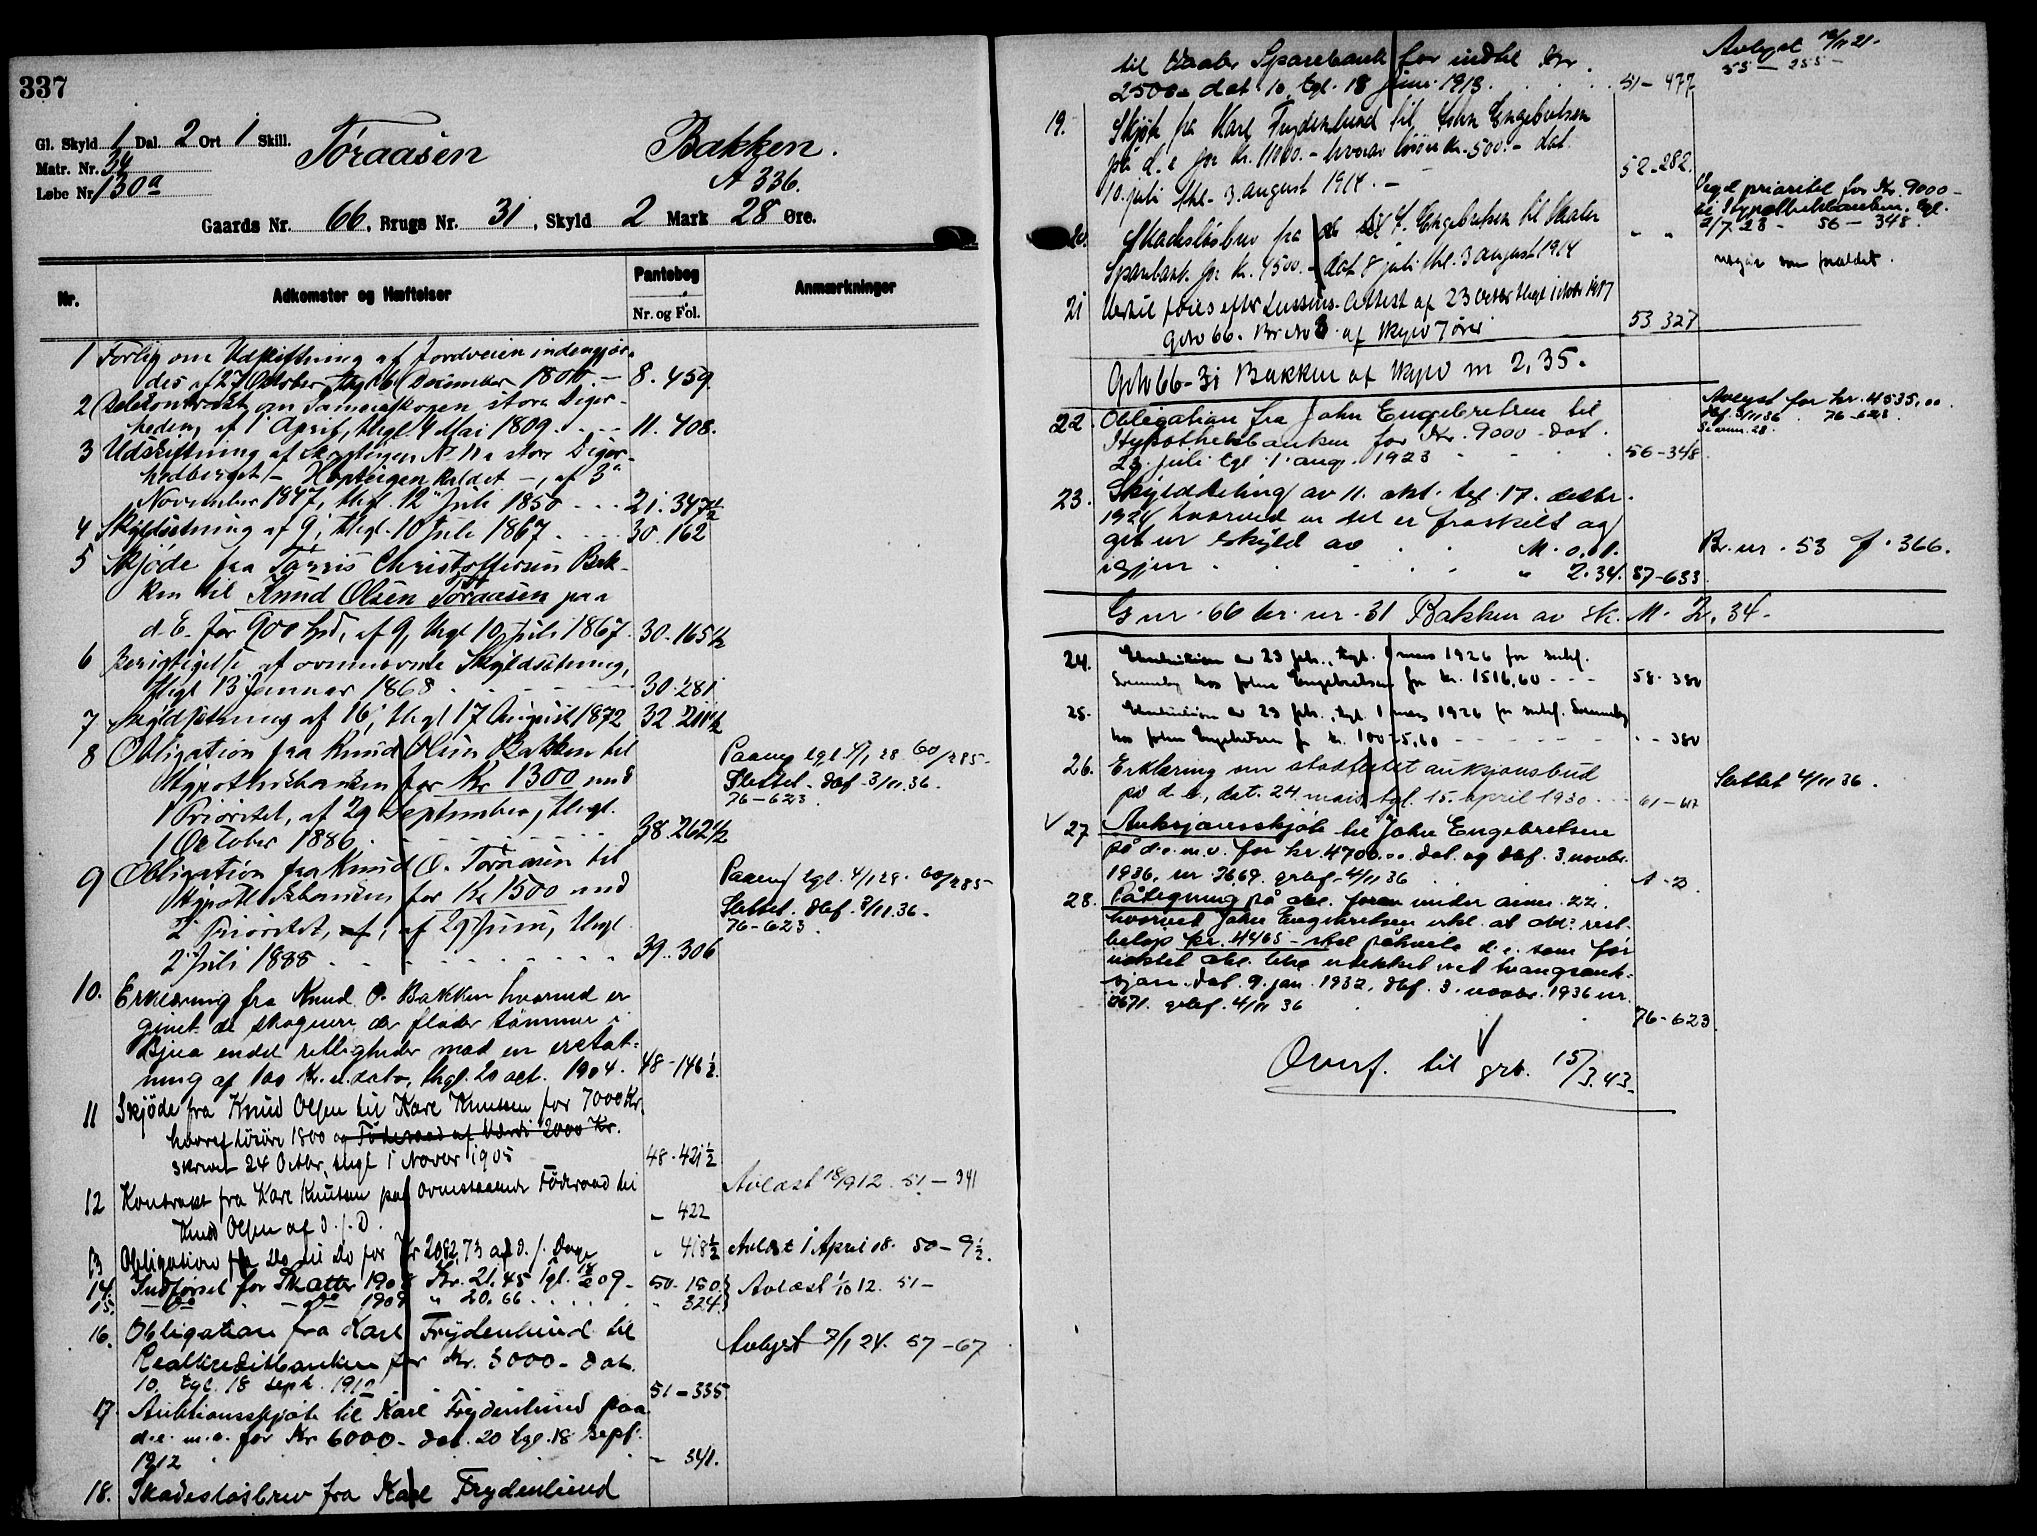 337
Gl. Skyld 1 Dal. 2 Ort 1 Skill.
Matr. Nr. 34
Løbe Nr. 130a
Toraasen
Bakken.
A 336.
Gaards Nr. 66, Brugs Nr. 31, Skyld 2 Mark 28 Øre.
Nr.
Adkomster og Hæftelser
Pantebog
Nr. og Fol.
Anmærkninger
1 Forlig om Udskiftning af Jordveien indengjær-
des af 27 October, thgl. 6 December 1800. — 8. 459
2 Delekontrakt om Sameieskogen store Diger-
heden, af 1 April, thgl. 4 Mai 1809. 11. 408.
3 Udskiftning af Skogteigen No 11 a store Diger-
hedberget — Hopteigen kaldet —, af 3
November 1847, thgl. 12 Juli 1850 21. 347½
4 Skyldsætning af 9, thgl. 10 Juli 1867 30. 162
5 Skjøde fra Tarris Christoffersen Bak-
ken til Knud Olsen Toraasen paa
d. E. for 900 Spd, af 9, thgl. 10 Juli 1867. 30. 165½
6 Berigtigelse af ovennævnte Skyldsætning,
thgl. 13 Januar 1868 30. 281
7 Skyldsætning af 16, thgl. 17 August 1872 32. 211½
8 Obligation fra Knud Olsen Bakken til
Hypothekbanken for Kr 1300 med
1 Prioritet, af 29 September, thgl.
1 October 1886. 38. 262½
Paaeng tgl. 4/1 28 60/285-
Slettet. dbf. 3/11.36.
76-623.
9 Obligation fra Knud O. Toraasen til
Hypothekbanken for Kr 1500 med
2 Prioritet, af 29 Juni, thgl.
2 Juli 1888 39. 306
Paaeng tgl. 4/1 29. 60/285-
Slettet. dbf. 3/11.36.
76-623.
10. Erklæring fra Knud O. Bakken hvorved er
givet de skogeiere der fløder tømmer i
Bjua endel rettigheder mod en erstat-
ning af 100 Kr. d. dato, thgl. 20 oct. 1904. 48-146½
11 Skjøde fra Knud Olsen til Karl Knutsen for 7000 Kr.
hvoraf løsøre 1800 og Føderaad af Værdi 2000 Kr.
skrevet 24 Octbr, thgl 1 Novbr 1905 48. 421½
12 Kontrakt fra Karl Knutsen paa ovenstaaende Føderaad til
Knud Olsen af S. D. " 422
Avlæst 18/9 12. 51 — 341
13 Obligation fra Do til Do for Kr 2082,73 af S. D. Dage " 418½
Avlæst 1 April 08. 50 — 9½.
14. Indførsel for Skatter 1908 Kr. 21,45 Tgl. 18/2 09 - 50. 150
15. — do — do 1909 " 20.66 " 324
Avlæst 1/10 12. 51 —
16. Obligation fra Karl Frydenlund til
Realkreditbanken for Kr. 3000 - dat.
10, tgl. 18 sept. 1912 51-335
Avlyst 7/1 24. 57-67
17. Auktionsskjøte til Karl Frydenlund paa
d.e. m.v. for Kr 6000 - dat. 20 tgl. 18 sept.
1912 — 341.
18. Skadesløsbrev fra Karl Frydenlund
til Vaaler Sparebank for indtil Kr.
2500 - dat 10, tgl. 18 juni 1913. 51-477
Avlyst 19/11 21.
55 — 255 —
19. Skjøte fra Karl Frydenlund til John Engebretsen
på d. e for kr. 11000.- hvorav løsøre kr. 500.- dat.
10. juli thl. 3 august 1914. — 52-282.
20. Skadesløsbrev fra J. Engebretsen til Vaaler
Sparebank for kr. 4500.- dat 8 juli thl. 3 august 1914 " "
Veget prioritet for Kr. 9000 -
til Hypothekbanken, tgl.
2/7 23 - 56 — 348.
utgår som foreldet.
21 Hertil føies efter Lensmands Attest af 23 October thgl 1 Novbr 1917
Gno 66. Br No 3 af skyld 7 øre 53 327
Gno 66-31 Bakken af skyld m 2,35.
22. Obligation fra John Engebretsen til
Hypothekbanken for Kr. 9000 - dat.
23. juli tgl. 1. aug. 1923 56-348
Avlyst for kr. 4535,00
dbf. 3/11 36 76-623.
Se anm. 28.
23. Skylddeling av 11. okt. tgl. 17. decbr.
1924 hvorved er det er fraskilt og
git en skyld av M. 0.01.
igjen " 2.34. 57-633.
Br. nr. 53 f. 366.
G nr. 66 br. nr. 31 Bakken av sk. M. 2,34 -
24. Eksekution av 23 feb., tgl. 1 mars 1926 for
hos John Engebretsen for kr. 1516,60 58. 380
25. Eksekution av 23 feb., tgl. 1 mars 1926 for
hos John Engebretsen for kr. - - 380
26. Erklæring om stadfestet auksjonsbud
på d. e., dat. 24. mars, tgl. 15. april 1930 61-617
Slettet 4/11 36.
27. Auksjonsskjøte til John Engebretsen
på d. e. m.v. for kr. 4700.00 dat. og dbf. 3. novbr.
1936, nr. 2669. grbf. 4/11 36 A-B.
28. Påtegning på obl. foran under anm. 22.
hvorved John Engebretsen erkl. at obl: rest-
beløp kr. 4465 - skal påhvile d. e. som før
uaktet obl. ikke er dekket ved tvangsauk-
sjon. Dat. 9. jan. 1932, dbf. 3. novbr. 1936 nr.
2671. grbf. 4/11 36 76-623
Overf. til grb. 15/3.43.